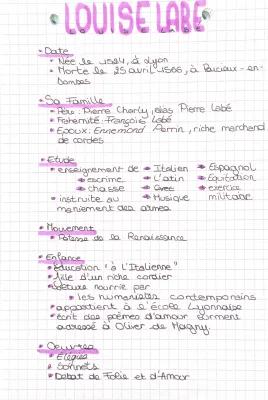 LOUISE LABÉ
• Date
• Née le 1524, à Lyon
• Morte le 25 avril 1566, à Parcieux-en-
Dombes
• Sa Famille
• Père : Pierre Charly, alias Pierre Labé
• Fraternité : François Labé
• Epoux : Ennemond Perrin, riche marchand
de cordes
• Etude
• enseignement de • Italien • Espagnol
• escrime • Latin • Equitation
• chasse • Grec • exercice
• instruite au • Musique militaire
maniement des armes
• Mouvement
• Poésie de la Renaissance
• Enfance
• Education "à l'Italienne"
• fille d'un riche cordier
• nourrie par
• les humanistes contemporains
• appartient à l'école Lyonnaise
• écrit des poèmes d'amour
adressé à Olivier de Magny.
• Oeuvres
• Elégies
• Sonnets
• Débat de Folie et d'Amour